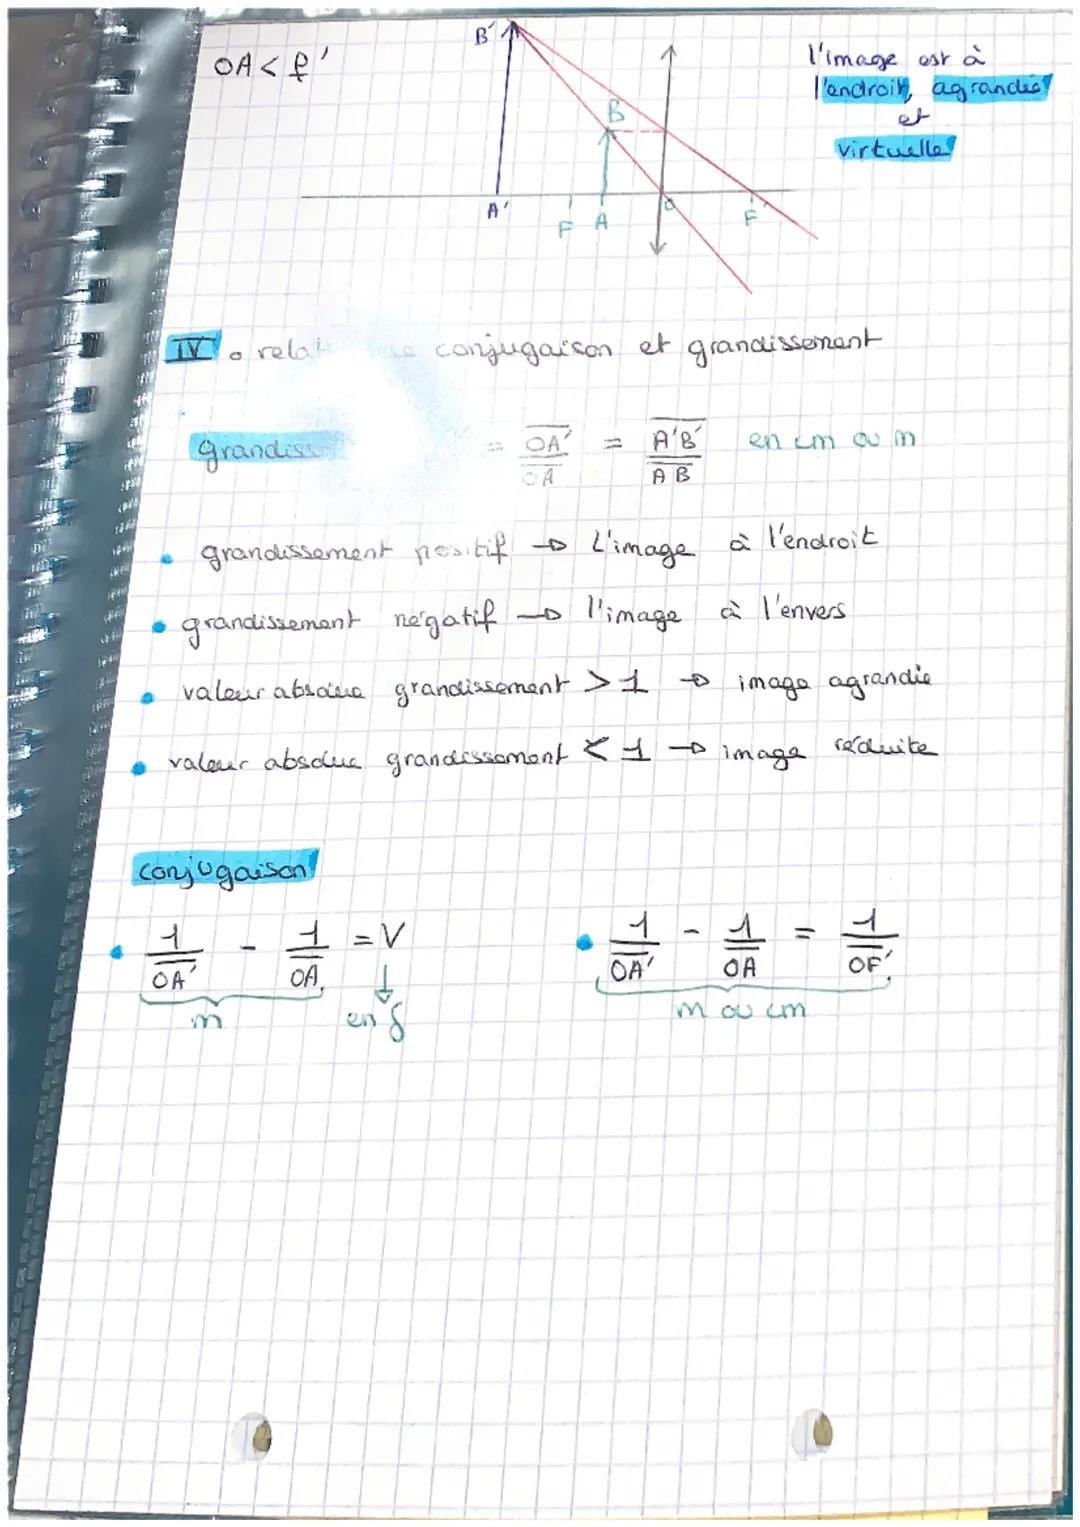 OA < f'
B'
B
A'
F
A
O
F'
l'image est à
l'endroit, agrandie
et
virtuelle
IV. conjugaison et grandissement
= OA' / OA = A'B' / AB en cm ou m
• grandissement positif → L'image à l'endroit
• grandissement négatif → l'image à l'envers
• valeur absolue grandissement > 1 → image agrandie
• valeur absolue grandissement < 1 → image réduite
conjugaison
• 1/OA' - 1/OA = V
m
en δ
• 1/OA' - 1/OA = 1/OF'
m ou cm